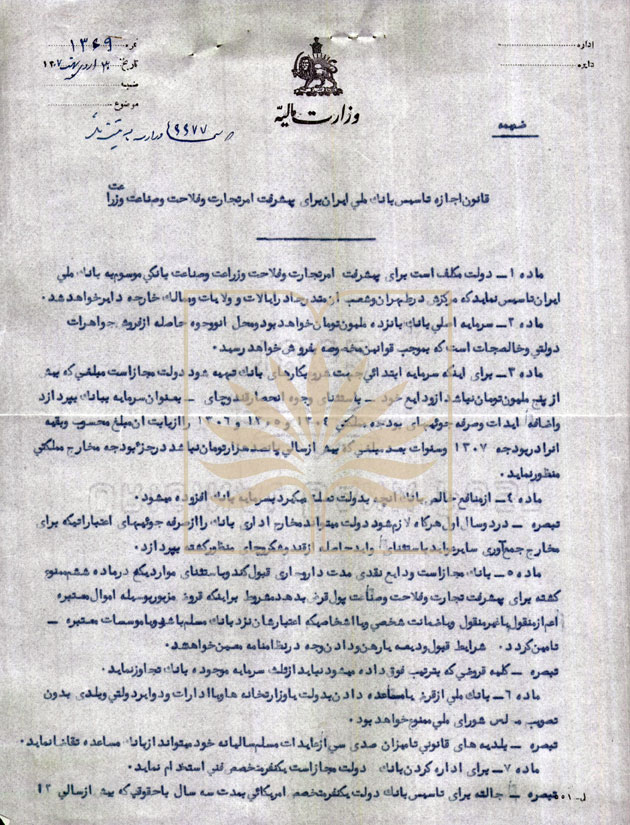 اداره
دایره
نمره ۱۳۶۹
تاریخ ۱۳۰۷
ضمیمه
موضوع
وزارت مالیّه
ضمیمه
قانون اجازه تاسیس بانك ملی ایران برای پیشرفت امر تجارت وفلاحت وصناعت وزراعت
ماده ۱ــ دولت مكلف است برای پیشرفت امر تجارت وفلاحت وزراعت وصناعت بانكی موسوم به بانك ملی
ایران تاسیس نماید كه مركزش در طهران وشعب آن در ایالات و ولایات وممالك خارجه دایر خواهد شد.
ماده ۲ــ سرمایه اصلی بانك پانزده ملیون تومان خواهد بود ومحل آن وجوه حاصله از فروش جواهرات
دولتی وخالصجات است كه بموجب قوانین مخصوصه بفروش خواهد رسید.
ماده ۳ــ برای اینكه سرمایه ابتدائی جهت شروع كارهای بانك تهیه شود دولت مجاز است مبلغی كه بیش
از پنج ملیون تومان نباشد از ودایع خود ــ باستثنای وجوه انحصار قند وچای ــ بعنوان سرمایه ببانك بپردازد
واضافه عایدات وصرفه جوئیهای بودجه مملكتی ۱۳۰۴ و ۱۳۰۵ و ۱۳۰۶ را بابت آن مبلغ محسوب وبقیه
آنرا در بودجه ۱۳۰۷ وسنوات بعد مبلغی كه بیش از سالی پانصد هزار تومان نباشد در جزؤ بودجه مخارج مملكتی
منظور نماید.
ماده ۴ــ از منافع خالص بانك آنچه بدولت تعلق میگیرد بسرمایه بانك افزوده میشود.
تبصره ــ در دو سال اول هرگاه لازم شود دولت میتواند مخارج اداری بانك را از صرفه جوئیهای اعتباراتیكه برای
مخارج جمع آوری سایر عواید باستثنای عواید حاصله از قند وشكر وچای منظور گشته بپردازد.
ماده ۵ــ بانك مجاز است ودایع نقدی مدت دار وجاری قبول كند وباستثنای مواردیكه در ماده ششم ممنوع
گشته برای پیشرفت تجارت وفلاحت وصنعت پول قرض بدهد مشروط براینكه قروض مزبور بوسیله اموال معتبره
اعم از منقول یا غیر منقول ویا ضمانت شخصی ویا اشخاصیكه اعتبارشان نزد بانك مسلم باشد ویا موسسات معتبره ــ
تامین گردد. شرایط قبول ودیعه یا رهن ودادن وجه در نظامنامه معین خواهد شد.
تبصره ــ كلیه قروضی كه بترتیب فوق داده میشود نباید از ثلث سرمایه موجوده بانك تجاوز نماید.
ماده ۶ــ بانك ملی از قرض یا مساعده دادن بدولت یا وزارتخانه ها ویا ادارات ودوایر دولتی وبلدی بدون
تصویب مجلس شورای ملی ممنوع خواهد بود.
تبصره ــ بلدیه های قانونی تا میزان صدی سی از عایدات مسلم سالیانه خود میتوانند از بانك مساعده تقاضا نماید.
ماده ۷ــ برای اداره كردن بانك دولت مجاز است یكنفر متخصص فنی استخدام نماید.
تبصره ــ حالیه برای تاسیس بانك دولت یكنفر متخصص امریكائی بمدت سه سال با حقوقی كه بیش از سالی ۱۲